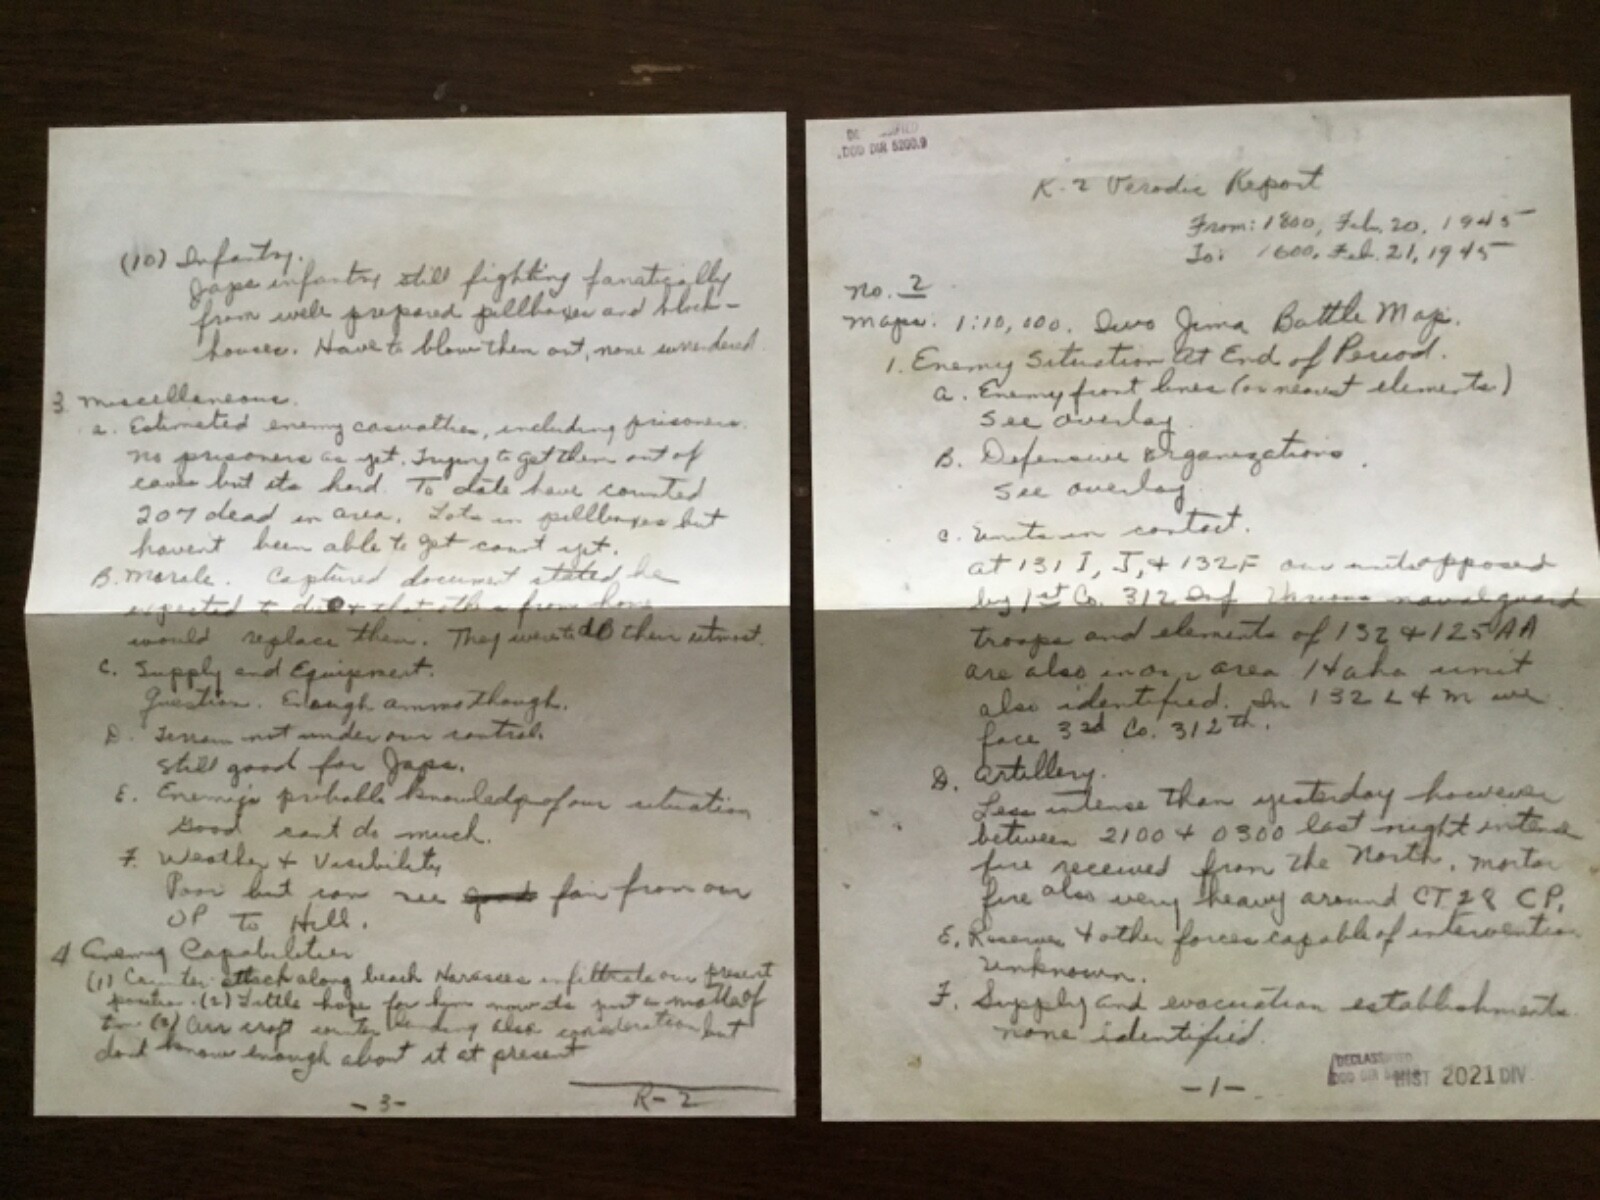 (10) Infantry.
Japs infantry still fighting fanatically
from well prepared pillboxes and block-
houses. Have to blow them out, none surrendered.
3. Miscellaneous.
a. Estimated enemy casualties, including prisoners.
no prisoners as yet. Trying to get them out of
caves but its hard. To date have counted
207 dead in area. Lots in pillboxes but
havent been able to get count yet.
B. Morale. Captured document stated he
expected to die & that others from home
would replace them. They were to do their utmost.
C. Supply and Equipment.
Question. Enough ammo though.
D. Terrain not under our control.
Still good for Japs.
E. Enemy's probable knowledge of our situation
Good cant do much.
F. Weather & Visibility
Poor but can see fair from our
OP To Hill.
4 Enemy Capabilities
(1) Counter attack along beach Harasses infiltrate our present
position. (2) Little hope for him now its just a matter of
(3) Air craft counter landing also consideration but
dont know enough about it at present
R-2
-3-
DOD DIR 5200.9
R-2 Periodic Report
From: 1800, Feb. 20, 1945
To: 1600, Feb. 21, 1945
No. 2
Maps: 1:10,000. Iwo Jima Battle Map.
1. Enemy Situation At End of Period.
a. Enemy front lines (or nearest elements)
See overlay
B. Defensive Organizations.
See overlay
C. Units in contact.
At 131 I, J, & 132F our units opposed
by 1st Co. 312 Inf. Various naval guard
troops and elements of 132 & 125 AA
are also in our area 14 aha unit
also identified. In 132 L & M we
face 3rd Co. 312th.
D. Artillery.
Less intense than yesterday however
between 2100 & 0300 last night intense
fire received from the North. Mortar
fire also very heavy around CT 28 CP.
E. Reserves & other forces capable of intervention
Unknown.
F. Supply and evacuation establishments.
none identified.
DECLASSIFIED
DOD DIR
HIST 2021 DIV
-1-